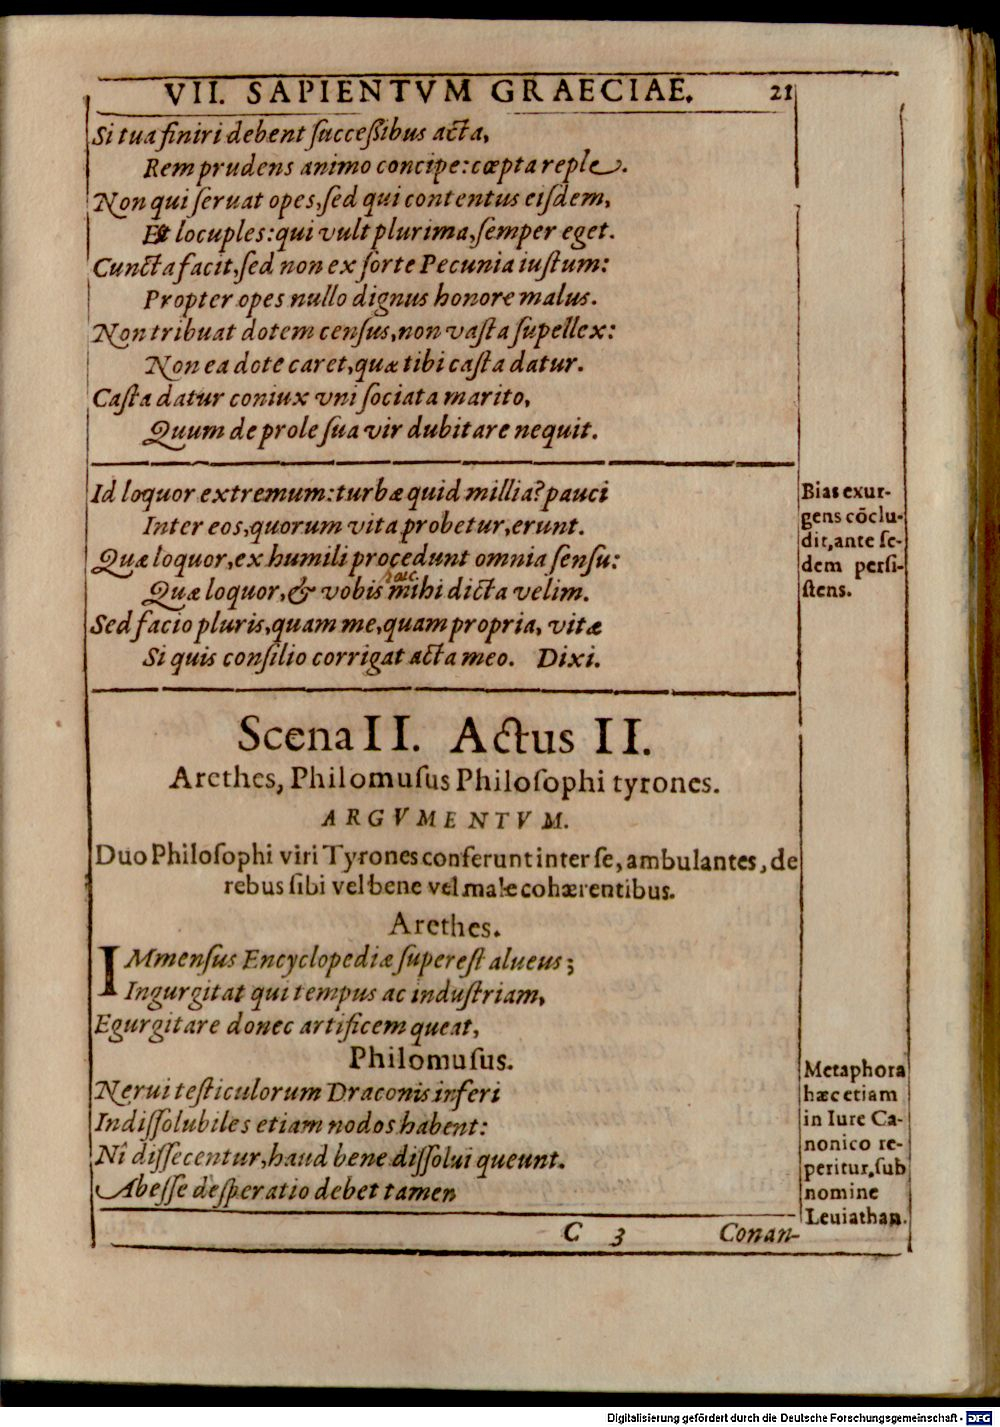 VII. SAPIENTVM GRAECIAE. 21
Si tua finiri debent succeßibus acta,
Rem prudens animo concipe: cœpta reple.
Non qui seruat opes, sed qui contentus eisdem,
Est locuples: qui vult plurima, semper eget.
Cuncta facit, sed non ex sorte Pecunia iustum:
Propter opes nullo dignus honore malus.
Non tribuat dotem census, non vasta supellex:
Non ea dote caret, quæ tibi casta datur.
Casta datur coniux vni sociata marito,
Quum de prole sua vir dubitare nequit.
Id loquor extremum: turbæ quid millia? pauci
Inter eos, quorum vita probetur, erunt.
Quæ loquor, ex humili procedunt omnia sensu:
Quæ loquor, & vobis mihi dicta velim.
Sed facio pluris, quam me, quam propria, vitæ
Si quis consilio corrigat acta meo. Dixi.
Bias exur-
gens cōclu-
dit, ante se-
dem persi-
stens.
Scena II. Actus II.
Arethes, Philomusus Philosophi tyrones.
ARGVMENTVM.
Duo Philosophi viri Tyrones conferunt inter se, ambulantes, de
rebus sibi vel bene vel male cohærentibus.
Arethes.
IMmensus Encyclopediæ superest alueus;
Ingurgitat qui tempus ac industriam,
Egurgitare donec artificem queat,
Philomusus.
Nerui testiculorum Draconis inferi
Indissolubiles etiam nodos habent:
Nî dissecentur, haud bene dissolui queunt.
Abesse desperatio debet tamen
Metaphora
hæc etiam
in Iure Ca-
nonico re-
peritur, sub
nomine
Leuiathan.
C 3 Conan-
Digitalisierung gefördert durch die Deutsche Forschungsgemeinschaft - DFG